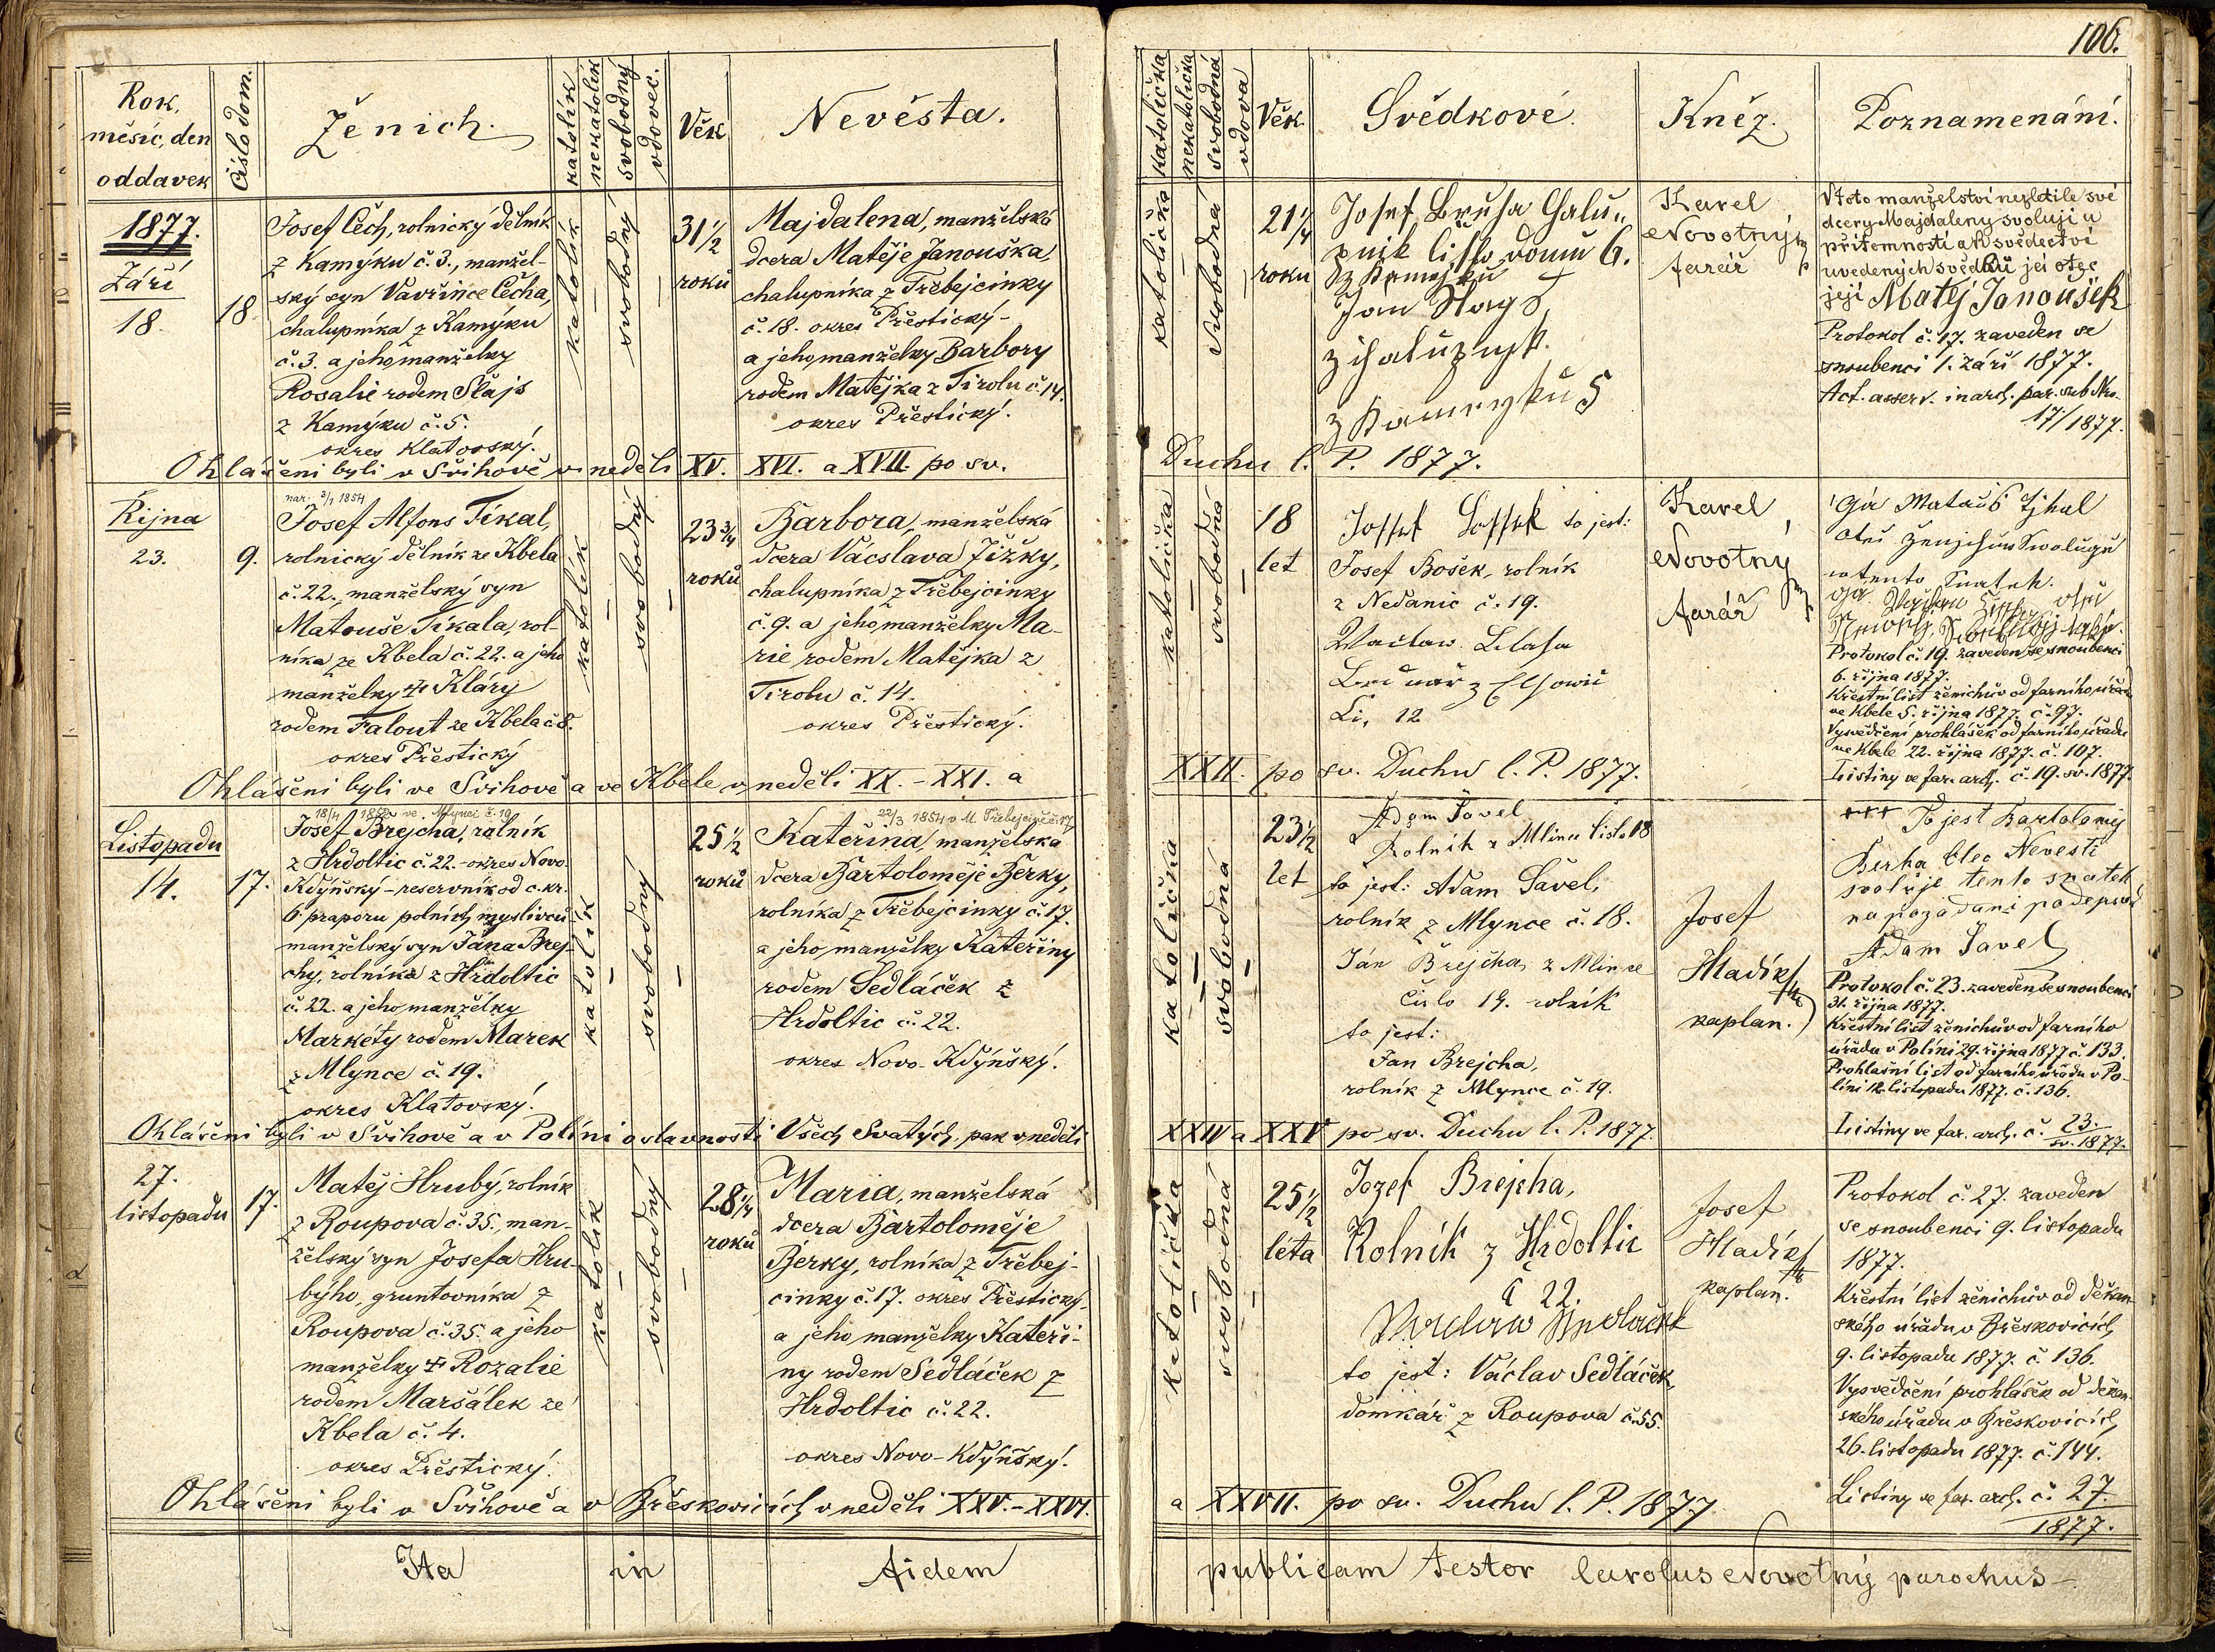 106.
Rok,
měsíc, den
oddavek
Číslo dom.
Ženich.
katolík
nekatolík
svobodný
vdovec.
Věk
Nevěsta.
katolička
nekatolička
svobodná
vdova
Věk.
Svědkové.
Kněz.
Poznamenání.
1877.
Září
18.
18.
Josef Čech, rolnický dělník
z Kamýku č. 3., manžel-
ský syn Vavřince Čecha,
chalupníka z Kamýku
č. 3. a jeho manželky
Rosalie rodem Slajs
z Kamýku č. 5.
okres Klatovský.
katolík
svobodný
31 1/2
roků
Majdalena, manželská
dcera Matěje Janouška,
chalupníka z Třebejcinky
č. 18. okres Přestický-
a jeho manželky Barbory
rodem Matějka z Tirolu č. 14.
okres Přestický.
katolička
svobodná
21 1/4
roku
Josef
domu 6.
Jan
5
Karel
Novotný
farář
V toto manželství nezletilé své
dcery Majdaleny svoluji u
přítomnosti a k svědectví
uvedených svědků její otec
její Matěj Janoušek
Protokol č. 17. zaveden se
snoubenci 1. září 1877.
Act. asserv. in arch. par. sub Nro.
17./1877.
Ohlášeni byli v Švihově v neděli XV. XVI. a XVII. po sv.
Duchu l. P. 1877.
Října
23.
9.
nar. 3/1 1854
Josef Alfons Tíkal,
rolnický dělník ze Kbela
č. 22., manželský syn
Matouše Tíkala, rol-
níka ze Kbela č. 22. a jeho
manželky Kláry
rodem Falout ze Kbela č. 8.
okres Přestický
katolík
svobodný
23 3/4
roků
Barbora, manželská
dcera Vácslava Jižky,
chalupníka z Třebejcinky
č. 9. a jeho manželky Ma-
rie rodem Matějka z
Tirolu č. 14.
okres Přestický.
katolička
svobodná
18
let
to jest:
Josef Bošek, rolník
z Nedanic č. 19.
12
Karel
Novotný
farář
Protokol č. 19. zaveden se snoubenci
6. října 1877.
Křestní list ženichův od farního úřadu
ve Kbele 5. října 1877. č. 97.
Vysvědčení prohlášek od farního úřadu
ve Kbele 22. října 1877. č. 107.
Listiny ve far. arch. č. 19. sv. 1877.
Ohlášeni byli ve Švihově a ve Kbele v neděli XX. - XXI. a
XXII. po sv. Duchu l. P. 1877.
Listopadu
14.
17.
18/4 ve Mlynci č. 19
Josef Brejcha, rolník
z Hrdoltic č. 22. - okres Novo-
Kdýňský - reservník od c. kr.
6. praporu polních myslivců
manželský syn Jana Brej-
chy, rolníka z Hrdoltic
č. 22. a jeho manželky
Markéty rodem Marek
z Mlynce č. 19.
okres Klatovský.
katolík
svobodný
25 1/2
roků
22/3 1854 v M. Třebejcině č. 17
Kateřina, manželská
dcera Bartoloměje Berky,
rolníka z Třebejcinky č. 17.
a jeho manželky Kateřiny
rodem Sedláček z
Hrdoltic č. 22.
okres Novo-Kdýňský.
katolička
svobodná
23 1/2
let
Adam Šavel
Rolník z Mlince číslo 18
to jest: Adam Šavel,
rolník z Mlynce č. 18.
Ján Brejcha z Mlince
číslo 19. rolník
to jest:
Jan Brejcha,
rolník z Mlynce č. 19.
Josef
Hladík
kaplan.
+++ To jest Bartoloměj
Berka Otec Nevesti
svoluje tento snatek
na pozadani podepsal
Adam Šavel
Protokol č. 23. zaveden se snoubenci
31. října 1877.
Křestní list ženichův od farního
úřadu v Poliní 29. října 1877 č. 133.
Prohlašní list od farního úřadu v Po-
líni 12. listopadu 1877. č. 136.
Listiny ve far. arch. č. 23. sv. 1877.
Ohlášeni byli v Švihově a v Políni o slavnosti Všech Svatých, pak v neděli
XXIV a XXV po sv. Duchu l. P. 1877.
27.
listopadu
17.
Matěj Hrubý, rolník
z Roupova č. 35., man-
želský syn Josefa Hru-
býho, gruntovníka z
Roupova č. 35. a jeho
manželky Rozalie
rodem Maršálek ze
Kbela č. 4.
okres Přestický.
katolík
svobodný
28 1/4
roků
Maria, manželská
dcera Bartoloměje
Berky, rolníka z Třebej-
cinky č. 17. okres Přestický,
a jeho manželky Kateři-
ny rodem Sedláček z
Hrdoltic č. 22.
okres Novo-Kdýňský.
katolička
svobodná
25 1/2
léta
Jozef Brejcha,
Rolník z Hrdoltic
č 22.
to jest: Václav Sedláček,
domkář z Roupova č. 55.
Josef
Hladík
kaplan.
Protokol č. 27. zaveden
se snoubenci 9. listopadu
1877.
Křestní list ženichův od děkan-
ského úřadu v Břeskovicích
9. listopadu 1877. č. 136.
Vysvědčení prohlášek od děkan-
ského úřadu v Břeskovicích
26. listopadu 1877. č. 144.
Listiny ve far. arch. č. 27.
1877.
Ohlášeni byli v Švihově a v Břeskovicích v neděli XXV. - XXVI.
a XXVII. po sv. Duchu l. P. 1877
Ita in fidem publicam testor Carolus Novotný parochus